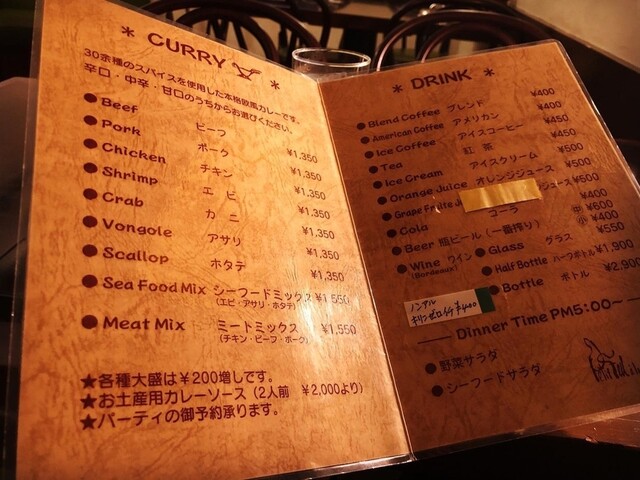 * CURRY *
30余種のスパイスを使用した本格欧風カレーです。
辛口・中辛・甘口のうちからお選びください。
●Beef ビーフ ¥1,350
●Pork ポーク ¥1,350
●Chicken チキン ¥1,350
●Shrimp エビ ¥1,350
●Crab カニ ¥1,350
●Vongole アサリ ¥1,350
●Scallop ホタテ ¥1,350
●Sea Food Mix シーフードミックス ¥1,550
(エビ・アサリ・ホタテ)
●Meat Mix ミートミックス ¥1,550
(チキン・ビーフ・ポーク)
★各種大盛は¥200増しです。
★お土産用カレーソース(2人前 ¥2,000より)
★パーティの御予約承ります。
* DRINK *
●Blend Coffee ブレンド ¥400
●American Coffee アメリカン ¥400
●Ice Coffee アイスコーヒー ¥450
●Tea 紅茶 ¥450
●Ice Cream アイスクリーム ¥500
●Orange Juice オレンジジュース ¥500
●Grape Fruite ジュース ¥500
●Cola コーラ ¥400
●Beer 瓶ビール(一番搾り) 中 ¥600
小 ¥400
●Wine ワイン ●Glass グラス ¥550
(Bordeaux) ●Half Bottle ハーフボトル ¥1,900
●Bottle ボトル ¥2,900
ノンアル
キリンゼロイチ ¥400
Dinner Time PM5:00~
●野菜サラダ
●シーフードサラダ